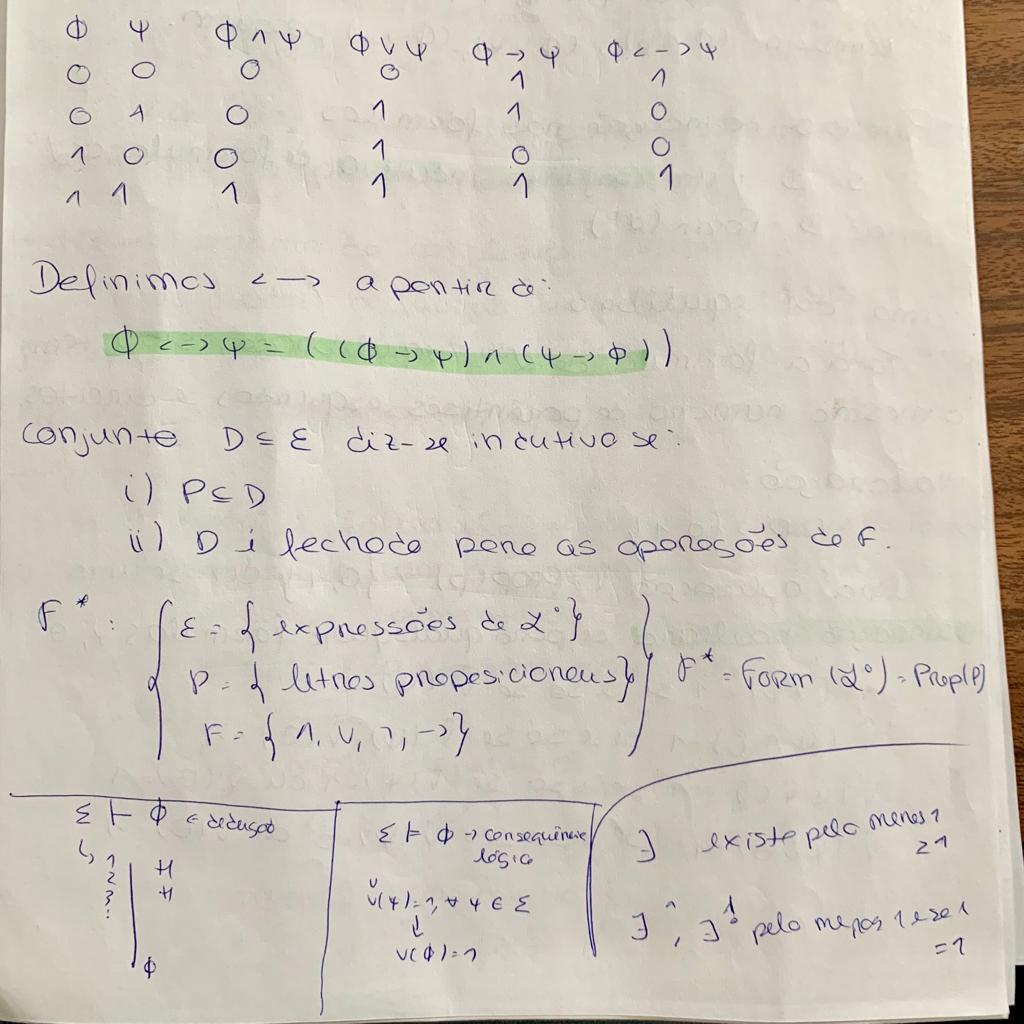 Φ Ψ Φ ∧ Ψ Φ ∨ Ψ Φ → Ψ Φ <-> Ψ
0 0 0 0 1 1
0 1 0 1 1 0
1 0 0 1 0 0
1 1 1 1 1 1
Definimos <-> a partir de:
Φ <-> Ψ = ((Φ → Ψ) ∧ (Ψ → Φ))
Conjunto D ⊆ E diz-se indutivo se:
i) P ⊆ D
ii) D é fechado para as operações de F.
F* : { E = { expressões de L⁰}
P = { letras proposicionais}
F = { ∧, ∨, ¬, →}
F* = Form (L⁰) = Prop(P)
Σ ⊢ Φ ← dedução
↳ 1 H
2 H
3
Φ
Σ ⊨ Φ → consequência
lógica
v(Ψ) = 1, ∀ Ψ ∈ Σ
↓
v(Φ) = 1
∃ existe pelo menos 1
≥1
∃¹, ∃! pelo menos 1 e se 1
= 1